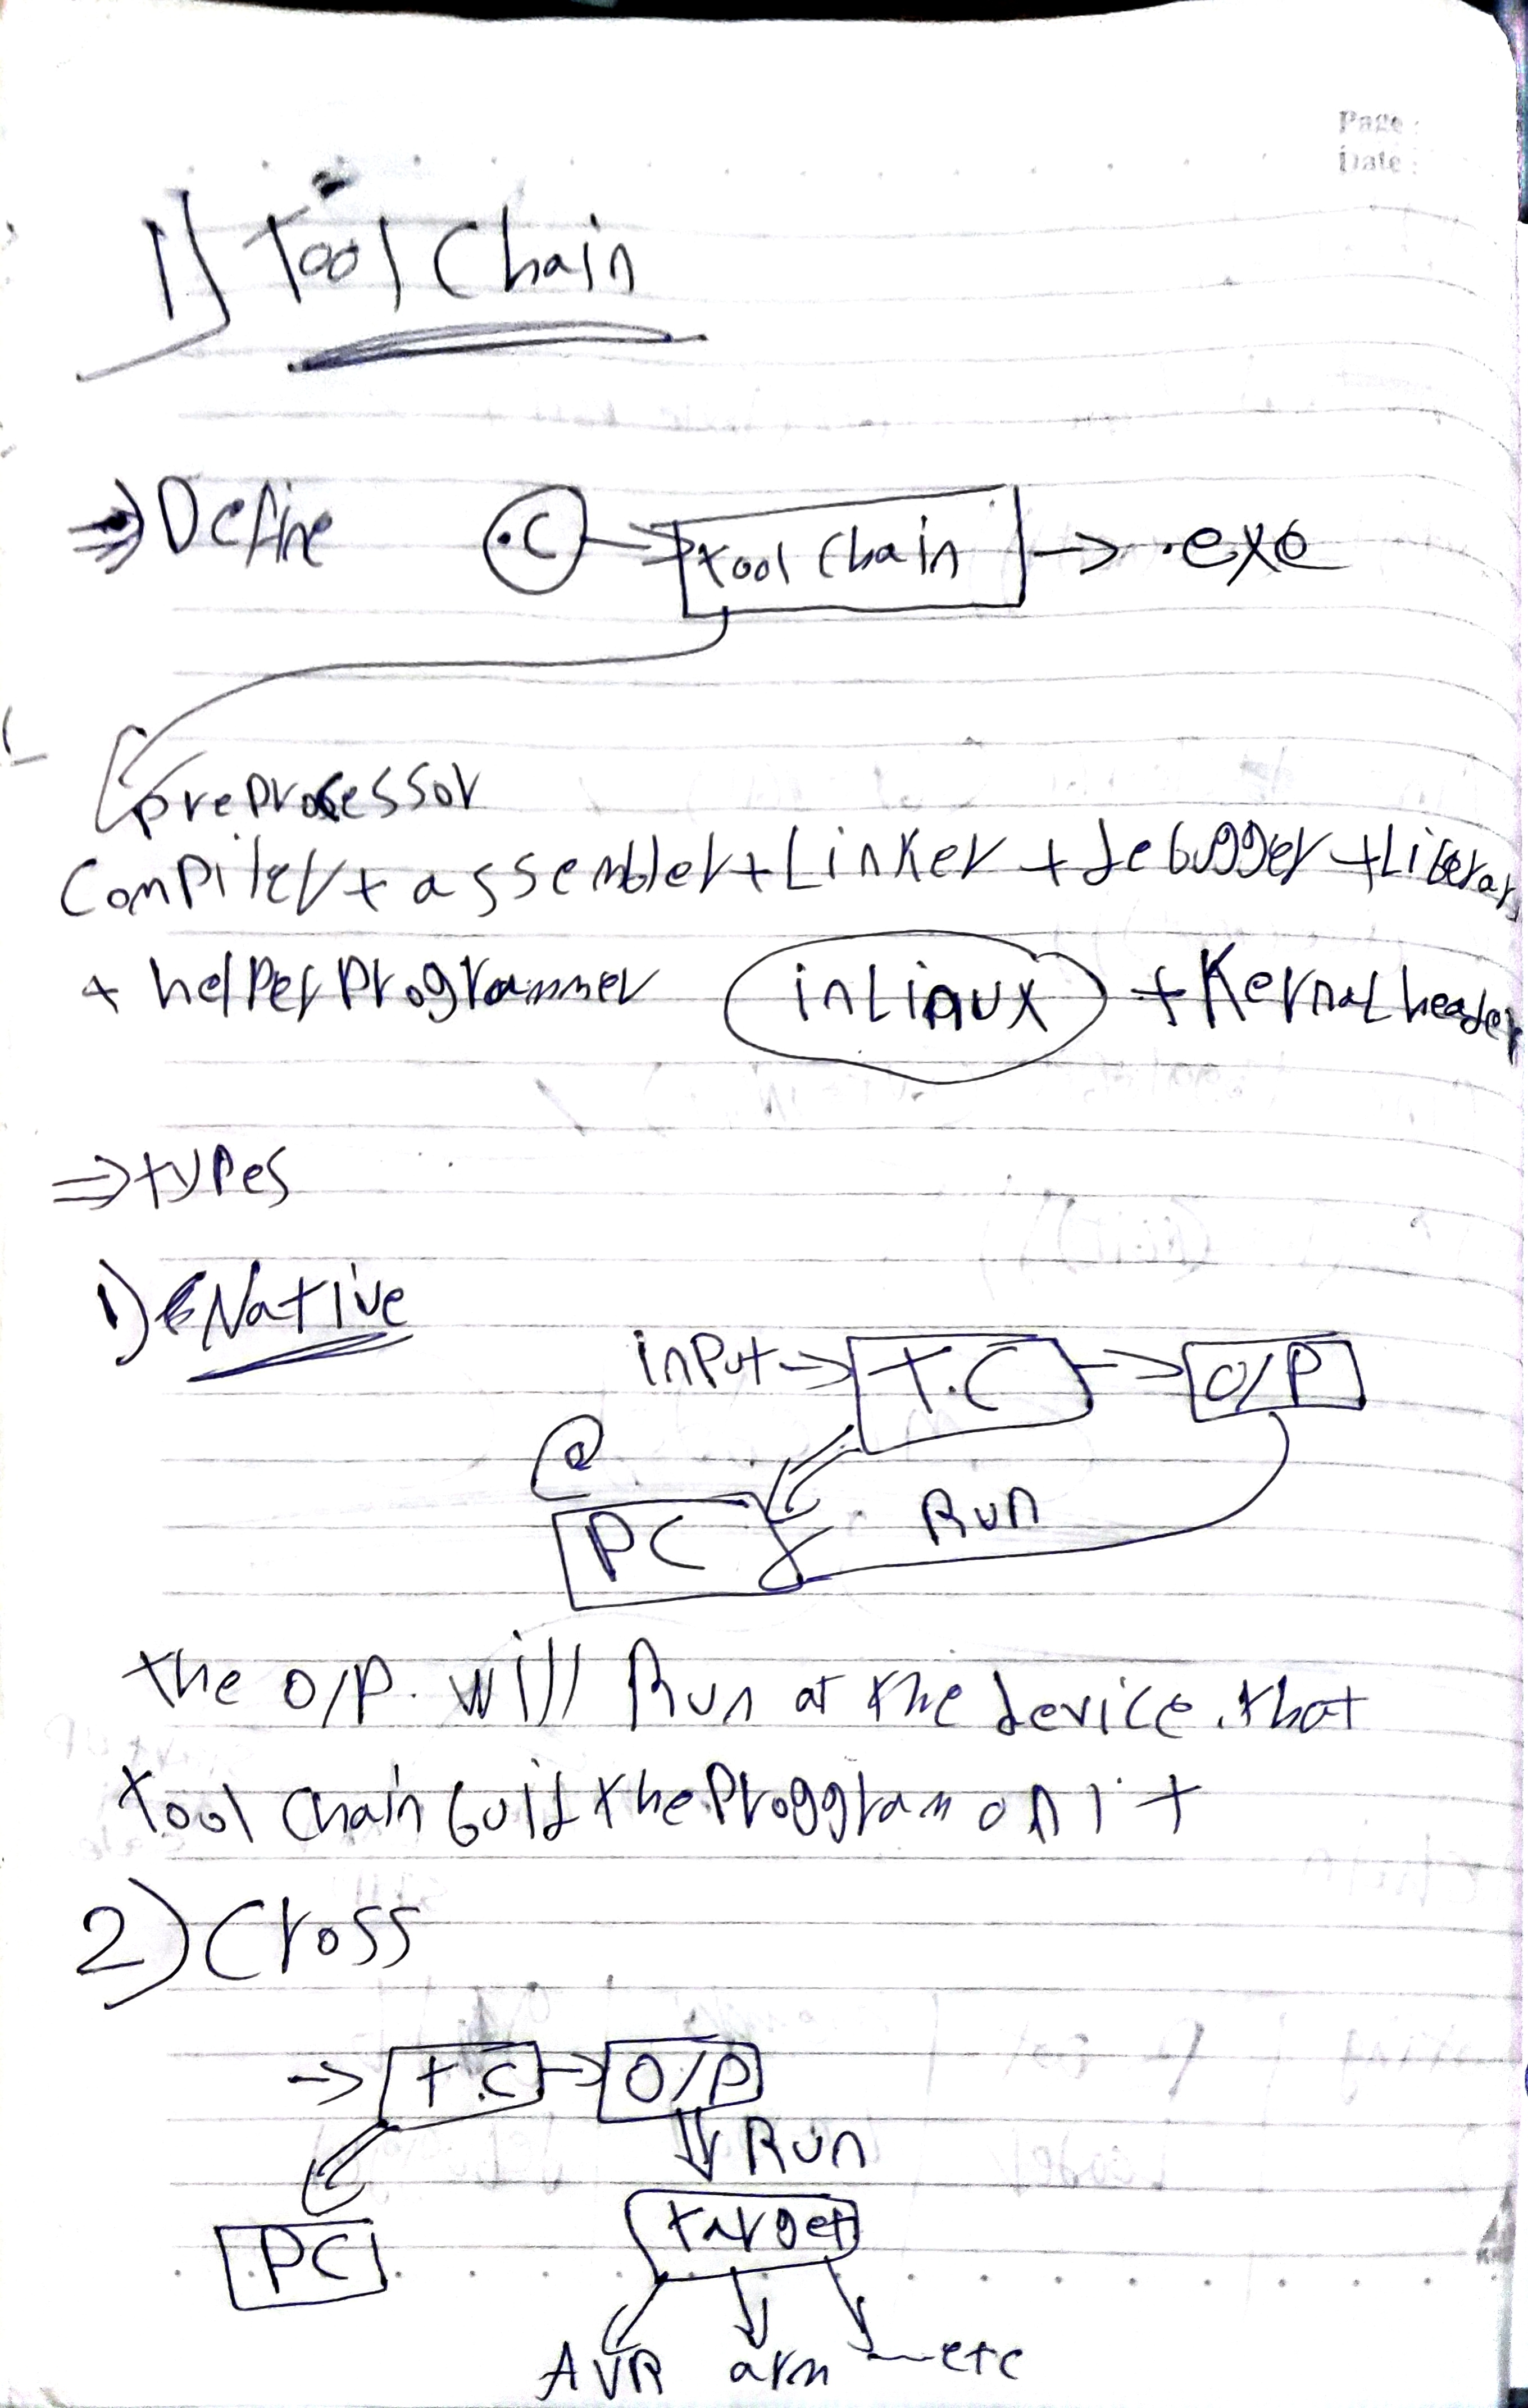 Page :
Date :
1) Tool Chain
⇒ Define .C → tool chain → .exe
preprocessor
Compiler + assembler + Linker + debugger + Liberary
+ helper Programmer in Linux + Kernal header
⇒ types
1) Native
input → T.C → O/P
@
PC Run
the O/P. will Run at the device. that
tool chain buid the Proggram on it
2) Cross
→ T.C → O/P
Run
PC target
AVR arm --etc